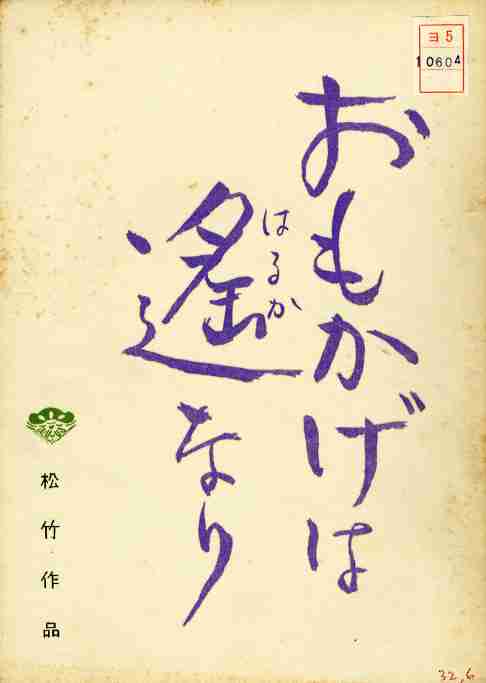 ヨ5
10604
おもかげは
遙なり
はるか
松竹作品
32.6